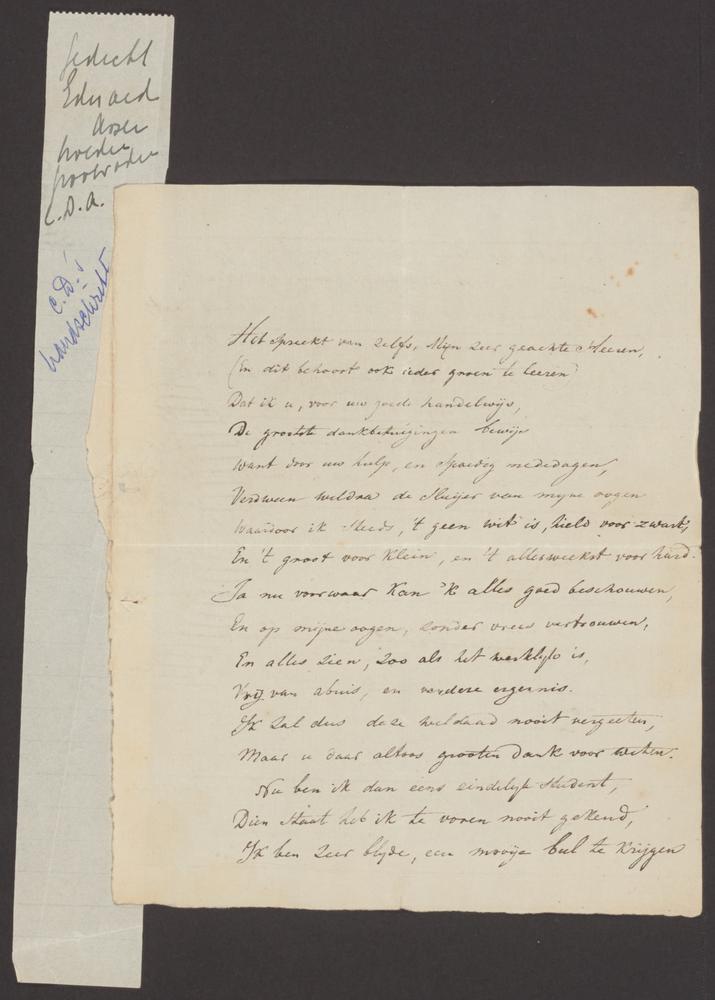 Gedicht
Eduard
Asser
C.D.A.
C.D.'s
handschrift
Het spreekt van zelfs, Mijn zeer geachte Heeren,
(En dit behoort ook ieder groen te leeren)
Dat ik u, voor uw goede handelwijs,
De grootste dankbetuigingen bewijs
Want door uw hulp, en spoedig mededogen,
Verdween weldra de sluijer van myne oogen
Waardoor ik steeds, 't geen wit is, hield voor zwart,
En 't groot voor klein, en 't allerweekst voor hard.
Ja nu voorwaar kan 'k alles goed beschouwen,
En op mijne oogen, zonder vrees vertrouwen,
En alles zien, zoo als het werklijk is,
Vrij van abuis, en verdere ergernis.
Ik zal dus deze weldaad nooit vergeeten,
Maar u daar altoos grooten dank voor weten.
Nu ben ik dan eens eindelijk student,
Dien staat heb ik te voren nooit gekend,
Ik ben zeer blijde, een mooije bul te krijgen